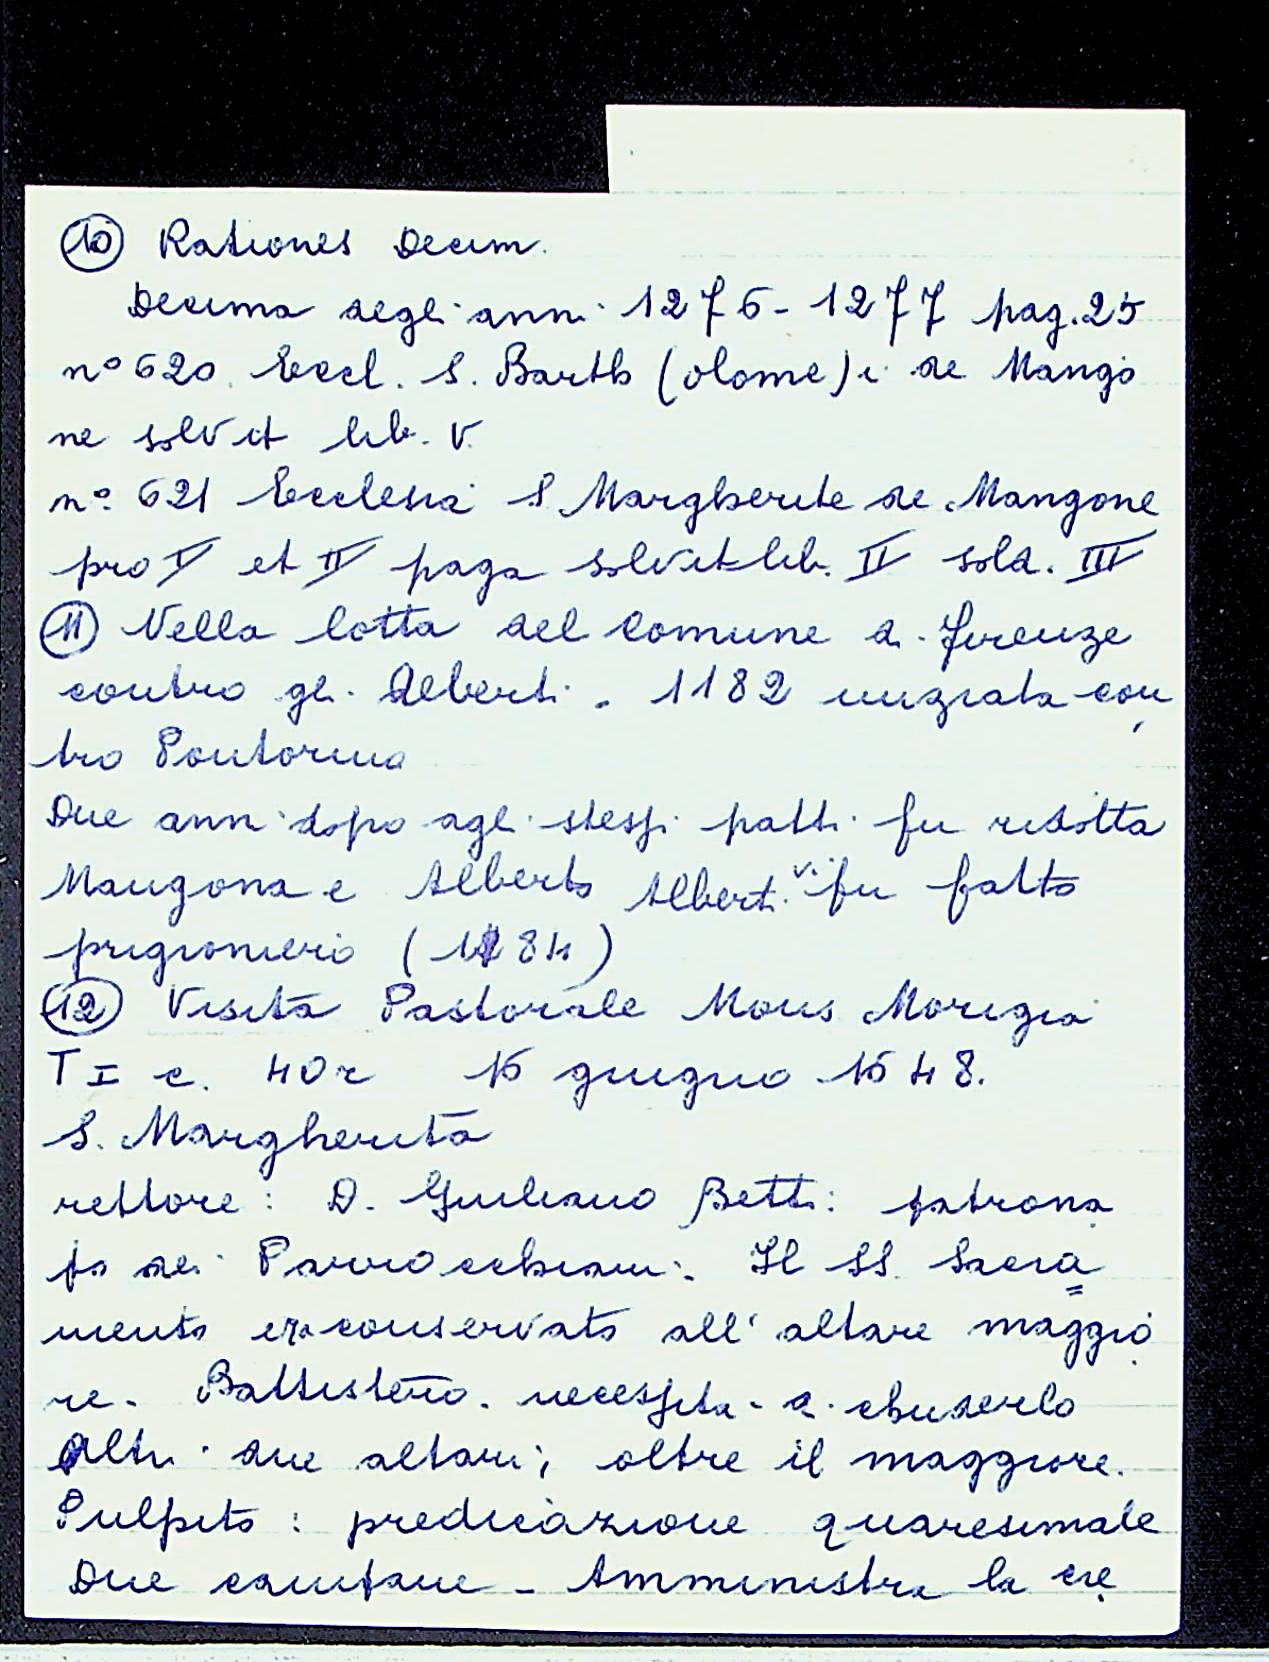 10 Rationes Decim.
Decima degli anni 1276-1277 pag. 25
n° 620. Eccl. S. Barth (olome) i de Mango
ne solvit lib. V.
n° 621 Ecclesia S. Margherite de Mangone
pro I et II paga solvit lib. II sold. III
11 Nella lotta del Comune di Firenze
contro gli Alberti. 1182 iniziata con
tro Pontormo
Due anni dopo agli stessi patti fu ridotta
Mangona e Alberto Alberti vi fu fatto
prigioniero (1184)
12 Visita Pastorale Mons Morigia
T I c. 40r 15 giugno 1548.
S. Margherita
rettore: D. Giuliano Betti: patrona
to dei Parrocchiani. Il SS. Sacra
mento era conservato all'altare maggio
re. Battistero. necessita di chiuderlo
Altri due altari, oltre il maggiore.
Pulpito: predicazione quaresimale
Due campane - Amministra la cre